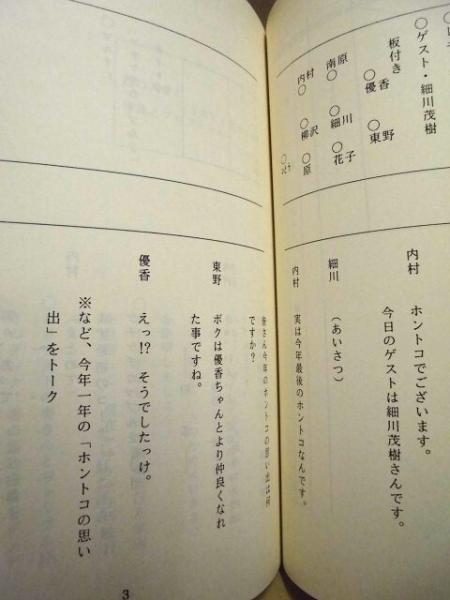 ○ゲスト・細川茂樹
板付き
○優香
○東野
南原
○
○細川
○花子
内村
○
○柳沢
○原
内村　ホントコでございます。
今日のゲストは細川茂樹さんです。
細川　（あいさつ）
内村　実は今年最後のホントコなんです。
皆さん今年のホントコの思い出は何
ですか？
東野　ボクは優香ちゃんとより仲良くなれ
た事ですね。
優香　えっ!?　そうでしたっけ。
※など、今年一年の「ホントコの思い
出」をトーク
3